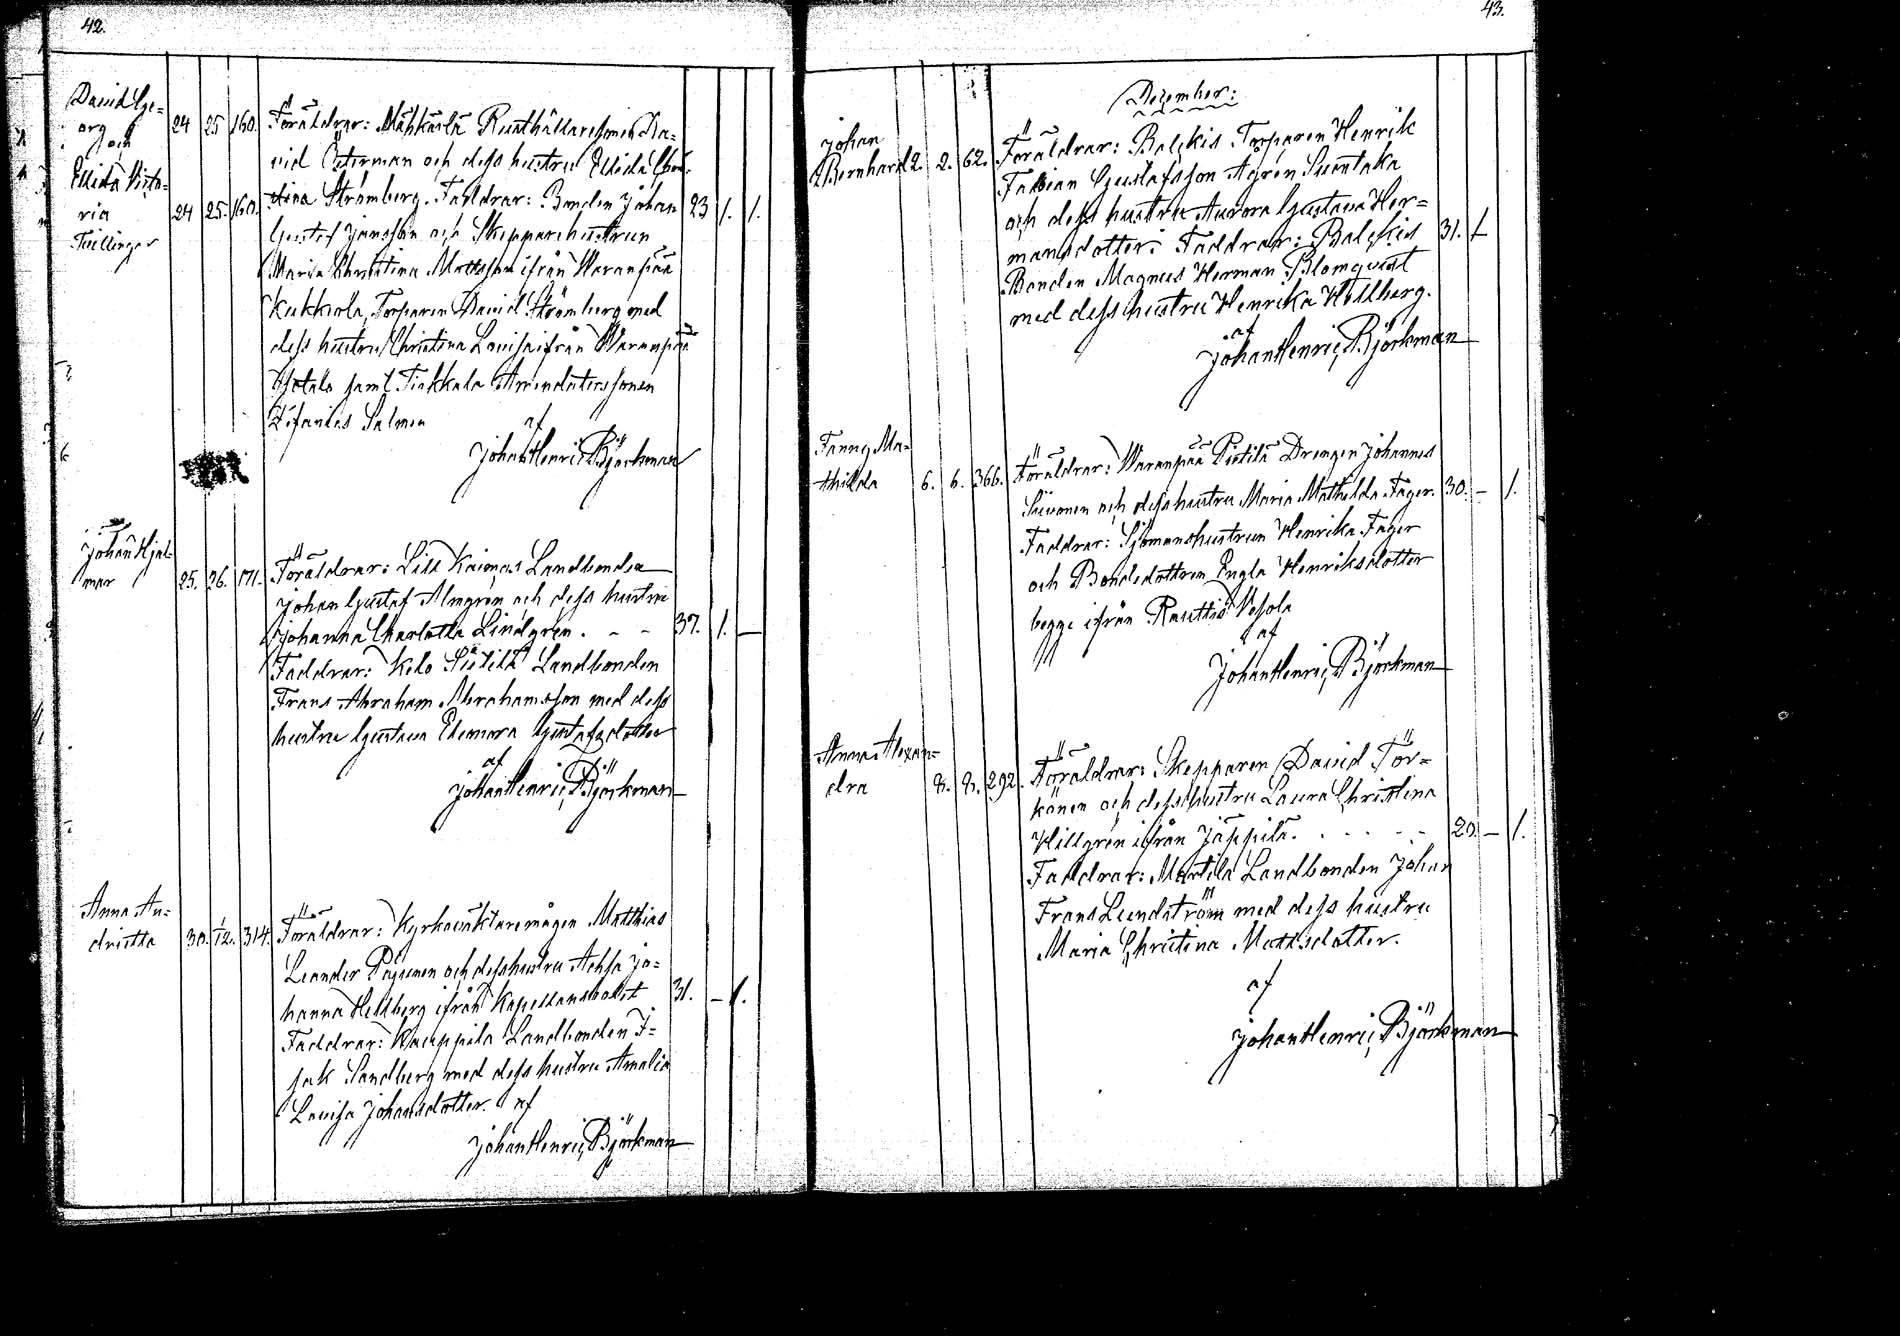 42.
David Ge=
org och
Ellida Victo-
ria
Tvillingar
24 25 160.
24 25. 160.
Föräldrar: Mäkkärlä Rusthållaresonen Da=
vid Österman och dess hustru Ellida Chris-
tina Strömberg. Faddrar: Bonden Johan 23 1. 1.
Gustaf Jansson och Skepparehustrun
Maria Christina Mattsson ifrån Waranpää
Kukkola, Torparen David Strömberg med
dess hustru Christina Lovisa ifrån Waranpää
samt Tiekkala Arrendatorssonen
Zefanias Salmen
af
Johan Henric Björkman
Johan Hjal-
mar 25. 26. 171.
Föräldrar: Lill Kaimas Landbonden
Johan Gustaf Almgren och dess hustru
Johanna Charlotta Lindgren. - - 37. 1. —
Faddrar: Kelo Siitilä Landbonden
Frans Abraham Abrahamsson med dess
hustru Gustava Eleonora Gustafsdotter
af
Johan Henric Björkman
Anna An=
drietta 30. 1/12. 314.
Föräldrar: Kyrkovaktaremågen Matthias
Leander Pajunen och dess hustru Achsa Jo=
hanna Hellberg ifrån Kapellansbolet 31. - 1.
Faddrar: Kauppila Landbonden I=
sak Sandberg med dess hustru Amalia
Lovisa Johansdotter. af
Johan Henric Björkman
43.
Dezember:
Johan
Bernhard 2. 2. 62.
Föräldrar: Balkis Torparen Henrik
Fabian Gustafsson Agrén Suontaka
och dess hustru Aurora Gustava Her=
mansdotter. Faddrar: Balkis 31. 1
Bonden Magnus Herman Blomqvist
med dess hustru Henrika Hellberg.
af
Johan Henric Björkman
Fanny Ma-
thilda 6. 6. 366.
Föräldrar: Waranpää Pietilä Drengen Johannes
Siivonen och dess hustru Maria Mathilda Fager. 30. - 1.
Faddrar: Sjömanshustrun Henrika Fager
och Bondedottren Engla Henriksdotter
begge ifrån Rauttis Wesola
af
Johan Henric Björkman
Anna Alexan=
dra 8. 8. 292.
Föräldrar: Skepparen David Tör=
könen och dess hustru Laura Christina
Hillgrén ifrån Jäppilä. . - - - - 20. - 1.
Faddrar: Marttila Landbonden Johan
Frans Lundström med dess hustru
Maria Christina Mattsdotter.
af
Johan Henric Björkman